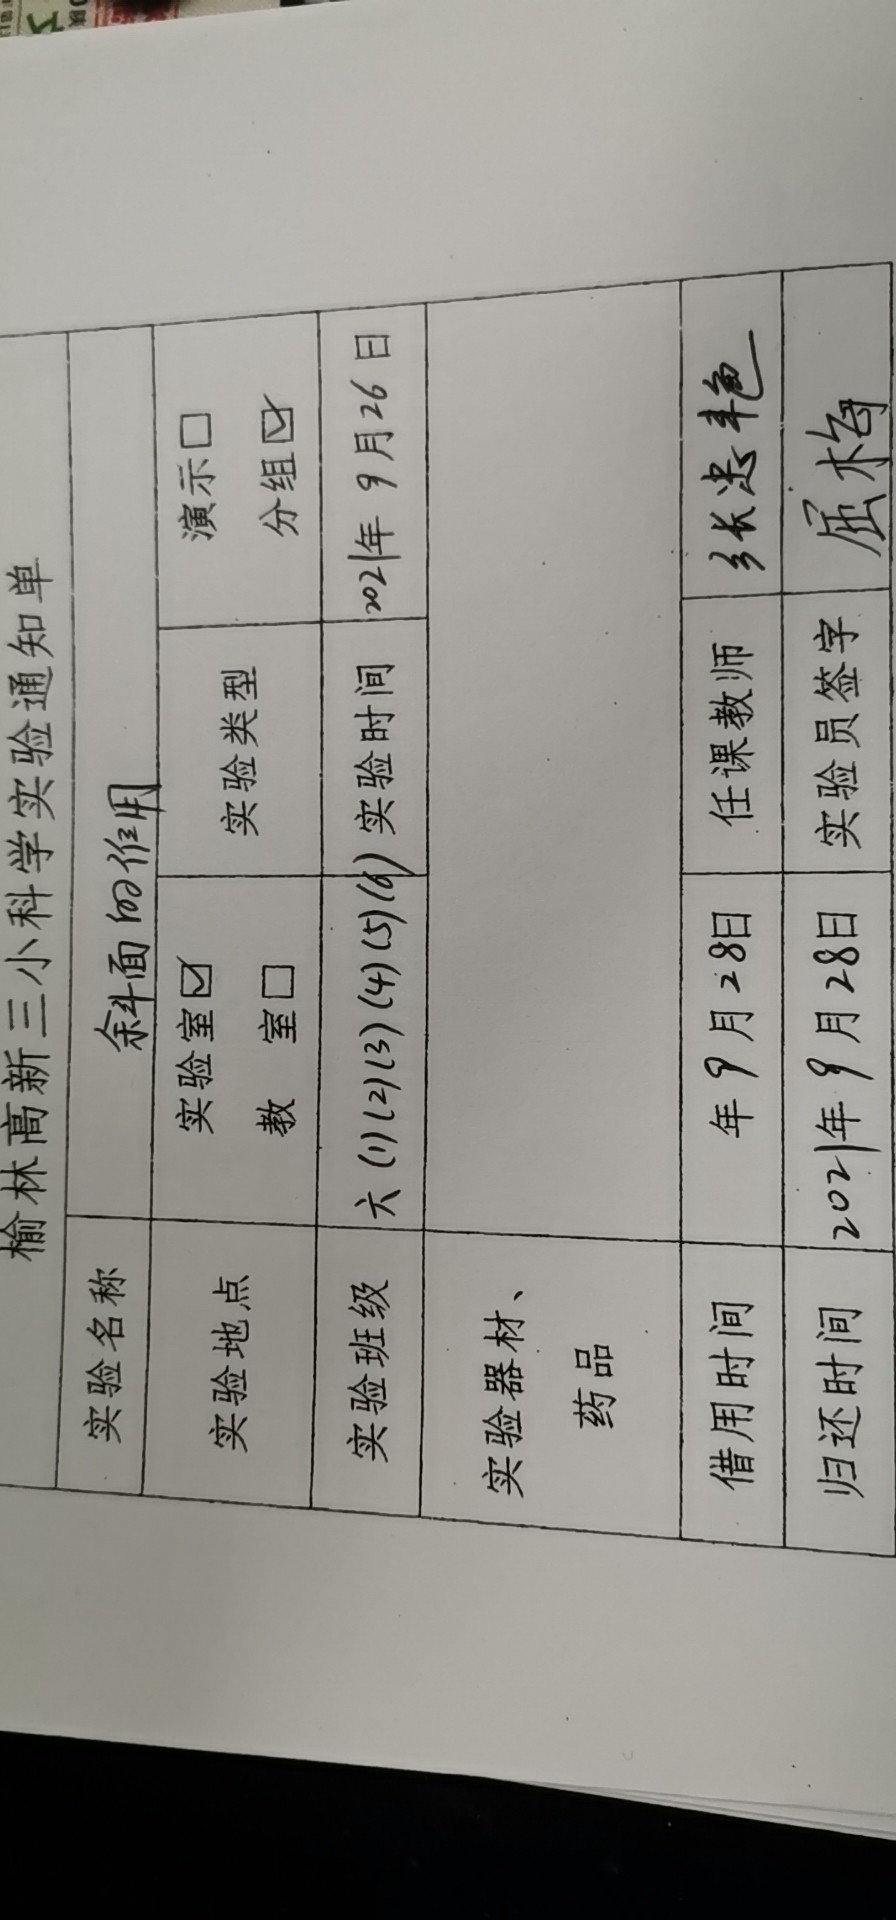 榆林高新三小科学实验通知单
实验名称 斜面的作用
实验地点 实验室☑ 教 室□ 实验类型 演示□ 分组☑
实验班级 六(1)(2)(3)(4)(5)(6) 实验时间 2021年 9月26日
实验器材、
药品
借用时间 年 9月28日 任课教师 张忠艳
归还时间 2021年 9月28日 实验员签字 屈梅